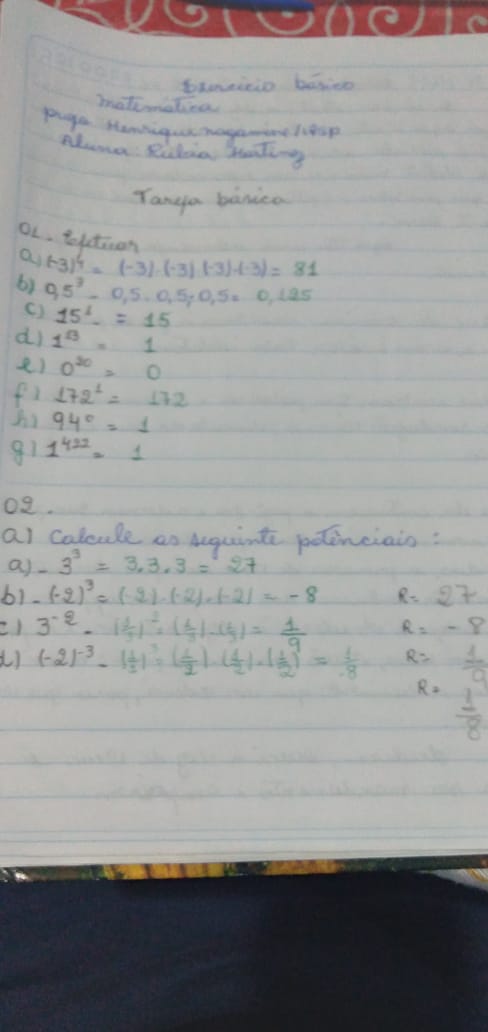 Exercício básico
matemática
Aluna: Rúbia Harting
Tarefa básica
01. Efetuar
a) (-3)⁴ = (-3).(-3).(-3).(-3) = 81
b) 0,5³ - 0,5.0,5.0,5 = 0,125
c) 15¹ - = 15
d) 1¹³ = 1
e) 0²⁰ = 0
f) 172¹ = 172
h) 94⁰ = 1
g) 1⁴²² = 1
02.
a) Calcule as seguinte potênciais:
a) - 3³ = 3.3.3 = 27
b) - (-2)³ = (-2).(-2).(-2) = -8 R = 27
c) 3⁻² - (1/3)² = (1/3).(1/3) = 1/9 R = -8
(-2)⁻³ - = (1/2).(1/2).(1/2) = 1/8 R = 1/9
R = 1/8